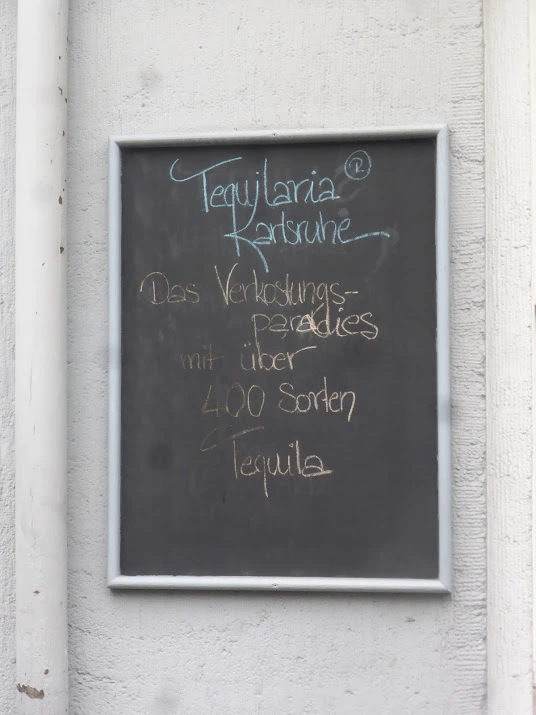 Tequilaria ®
Karlsruhe
Das Verkostungs-
paradies
mit über
400 Sorten
Tequila